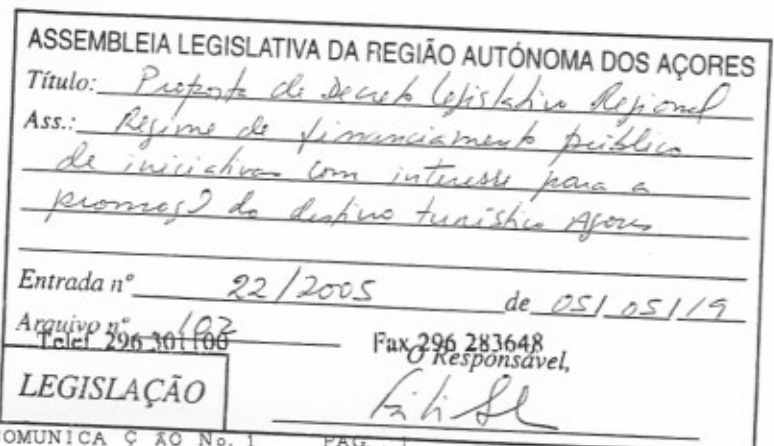 ASSEMBLEIA LEGISLATIVA DA REGIÃO AUTÓNOMA DOS AÇORES
Título: Proposta de Decreto Legislativo Regional
Ass.: Regime de financiamento público
de iniciativas com interesse para a
promoç? do destino turístico Açores
Entrada nº 22/2005 de 05/05/19
Arquivo nº 102
Telef. 296 301100 Fax 296 283648
O Responsável,
LEGISLAÇÃO
COMUNICA Ç ÃO No. 1 PAG.